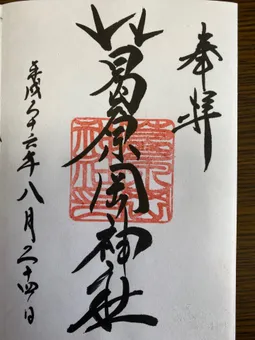 奉拝
葛原岡神社
平成二十六年八月二十四日